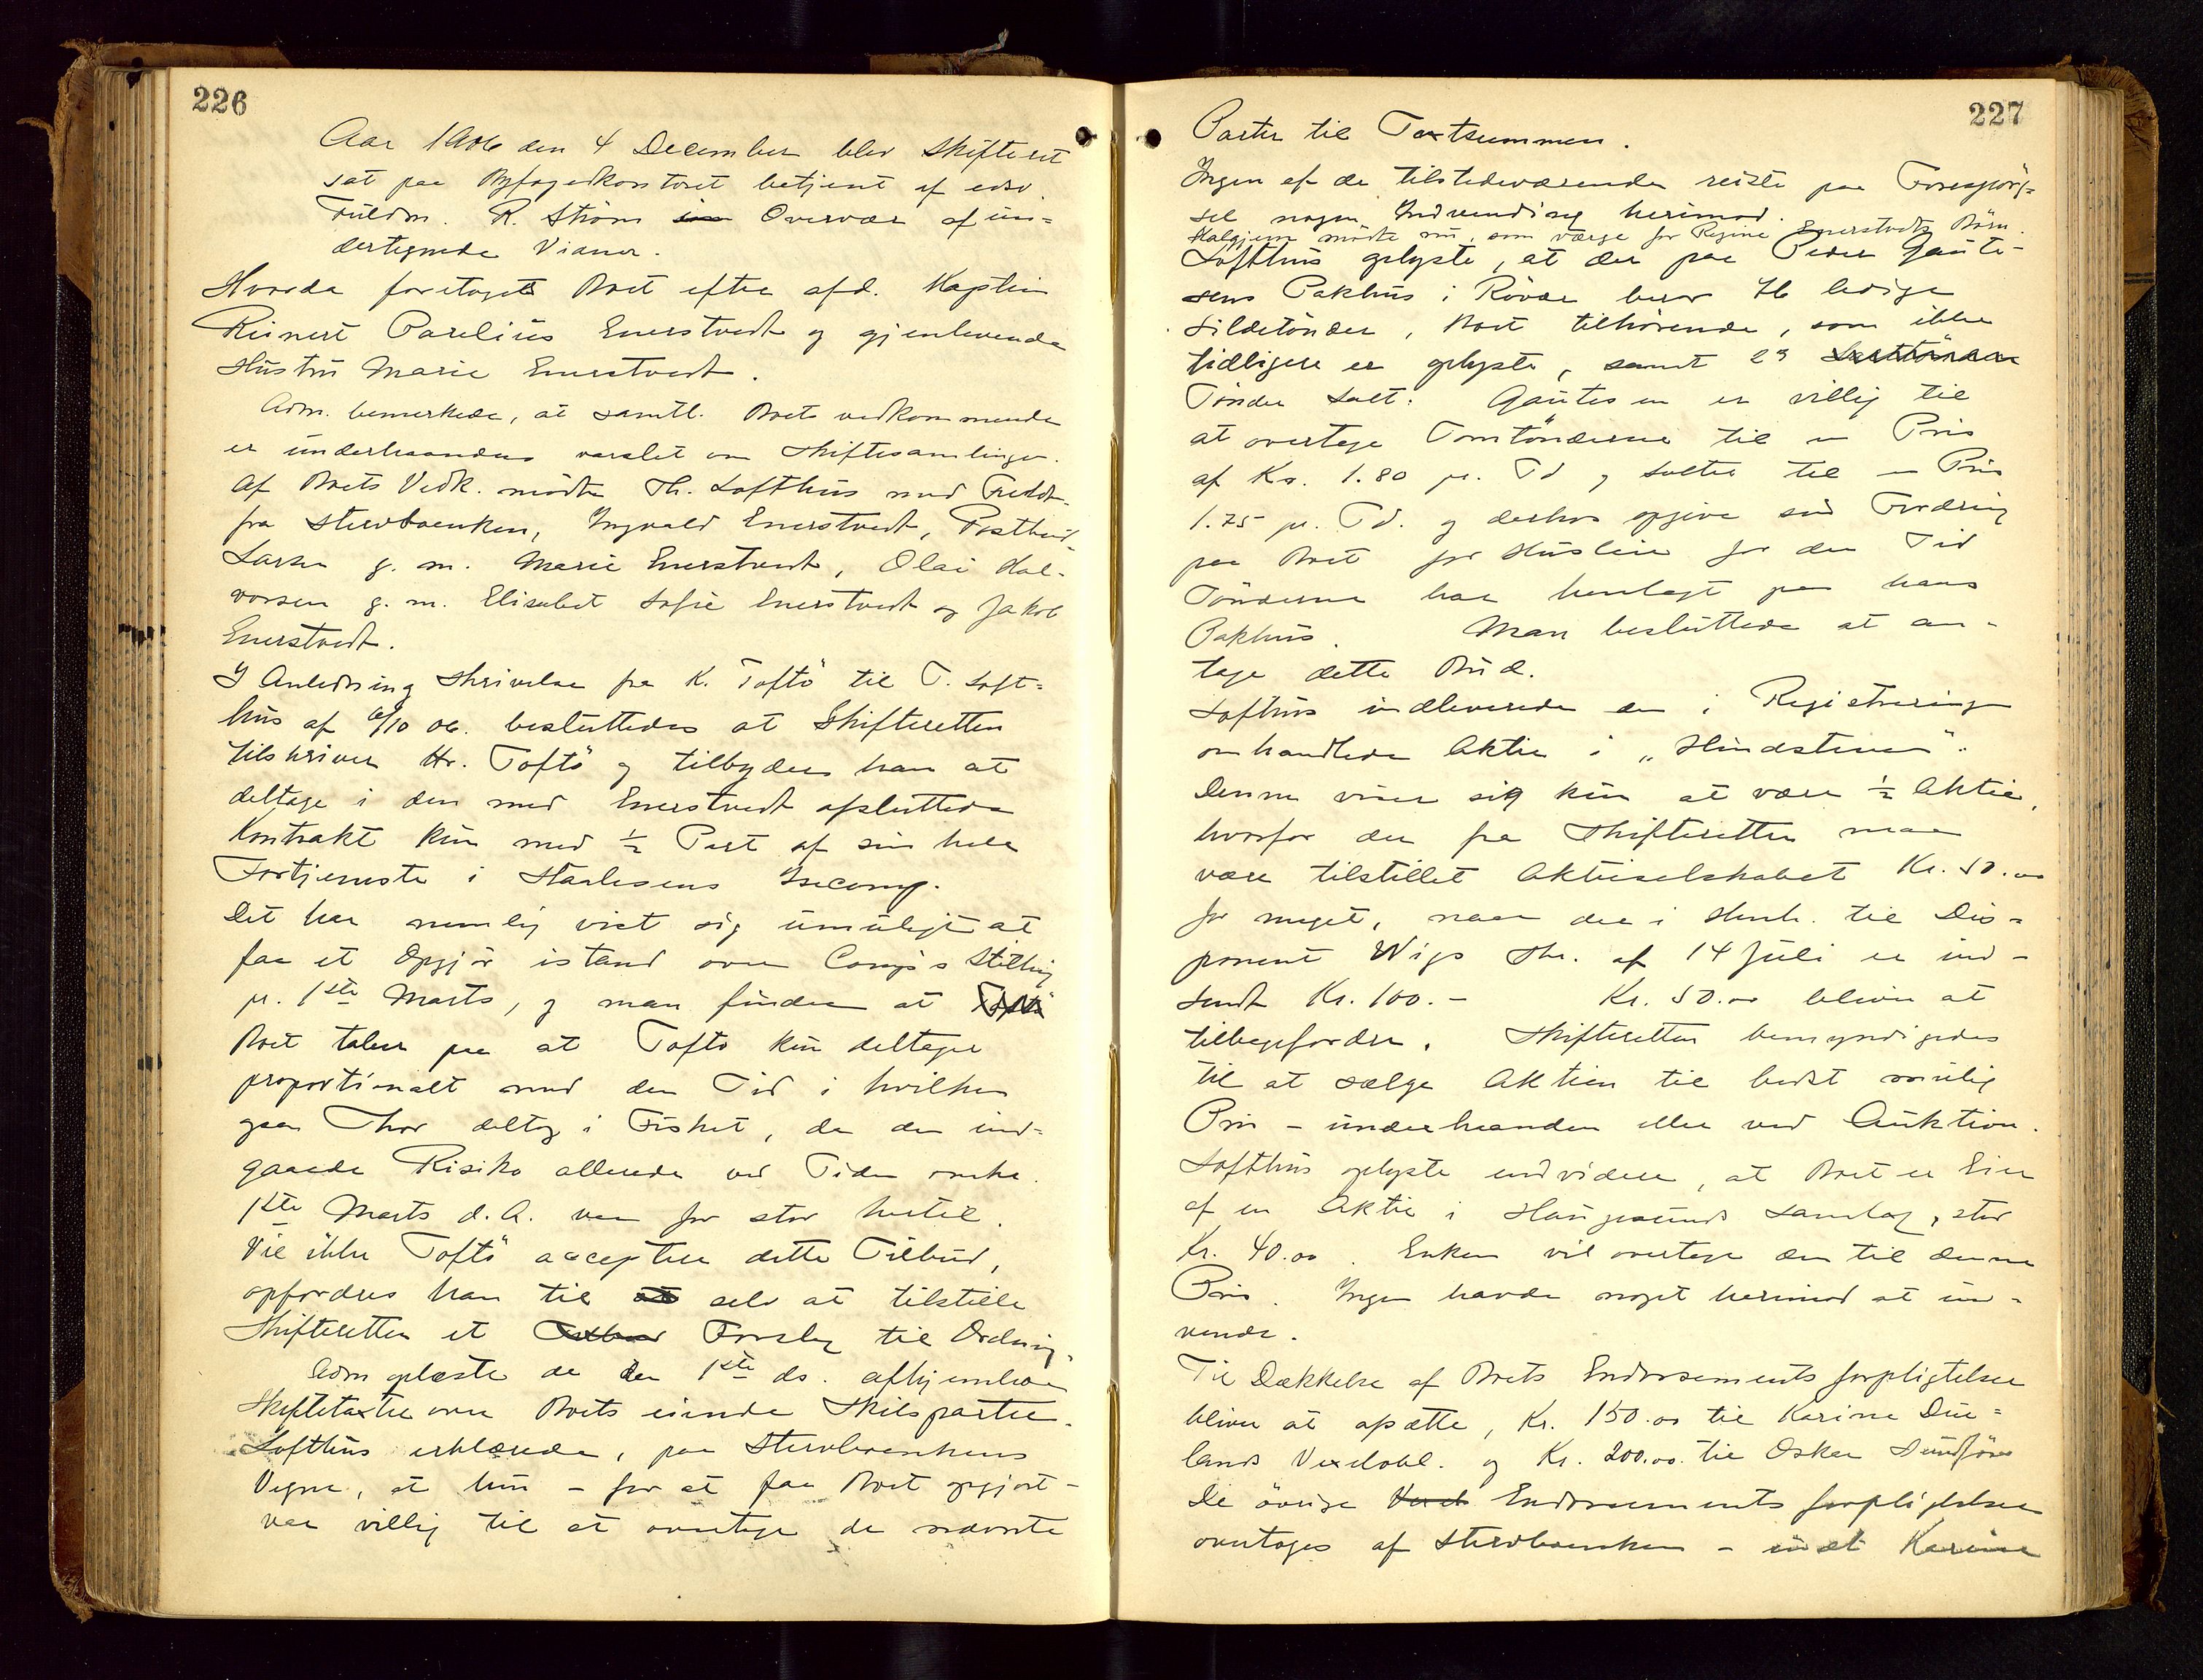 226
Aar 1906 den 4 December blev Skifteret
sat paa Byfogedkontoret betjent af edsv.
Fuldm. R. Ström i Overvær af un-
dertegnede Vidner.
Hvorda foretoges Boet efter afd. Kaptein
Reinert Parelius Enerstvedt og gjenlevende
Hustru Marie Enerstvedt.
Adm. bemerkede, at samtl. Boets vedkommende
er underhaanden varslet om Skiftesamlingen.
Af Boets Vedk. mödte Th. Lofthus med Fuldm.
fra Stervboenken, Ingvald Enerstvedt, Postbud
Larsen g. m. Marie Enerstvedt, Olai Hal-
vorsen g. m. Elisabet Sofie Enerstvedt og Jakob
Enerstvedt.
I Anledning Skrivelse fra K. Toftö til T. Loft-
hus af 6/10 06. besluttedes at Skifteretten
tilskriver Hr. Toftö og tilbyder ham at
deltage i den med Enerstvedt afsluttede
Kontrakt kun med ½ Part af sin hele
Fortjeneste i Iscomp.
Det har nemlig vist sig umuligt at
faa et Opgjör istand over Comp's Stilling
pr. 1ste Marts, og man finder at
Boet taler paa at Toftö kun deltager
proportionalt med den Tid i hvilken
ogsaa Thor deltog i Fisket, da den ind-
gaaede Risiko allerede ved Tiden omkr.
1ste Marts d. A. var for stor hertil.
Vil ikke Toftö acceptere dette Tilbud,
opfordres han til selv at tilstille
Skifteretten et Forslag til Ordning.
Adm oplæste de den 1ste ds. afhjemlede
Skiftetakster over Boets eiende Skibsparter.
Lofthus erklærede, paa Stervboenkens
Vegne, at hun - for at faa Boet opgjort -
var villig til at overtage de nævnte
227
Parter til Taxtsummen.
Ingen af de tilstedeværende reiste paa Forespörg-
sel nogen Indvending herimod.
mödte nu, som værge for Regine Enerstvedts Börn.
Lofthus oplyste, at der paa Peder Gaute-
sens Pakhus i Rövær beror 76 ledige
Sildetönder, Boet tilhörende, som ikke
tidligere er oplyste, samt 29
Tönder Salt. Gautesen er villig til
at overtage Tomtönderne til en Pris
af Kr. 1.80 pr. Td og Saltet til en Pris
1.75 pr. Td. og derhos opgive sin Fordring
paa Boet for Husleie for den Tid
Tönderne har henlagt paa hans
Pakhus. Man besluttede at an-
tage dette Bud.
Lofthus indleverede den i Registreringen
omhandlede Aktie i „Hindstenen".
Denne viser sig kun at være ½ Aktie,
hvorfor der fra Skifteretten maa
være tilstillet Aktieselskabet Kr. 50.00
for meget, naar der i Henh. til Dis-
ponent Wigs Skr. af 14 Juli er ind-
sendt Kr. 100.- Kr. 50.00 bliver at
tilbagefordre. Skifteretten bemyndigedes
til at sælge Aktien til bedst mulig
Pris - underhaanden eller ved Auktion.
Lofthus oplyste endvidere, at Boet er Eier
af en Aktie i Haugesunds Samlag, stor
Kr. 40.00. Enken vil overtage den til denne
Pris. Ingen havde noget herimod at ind-
vende.
Til Dækkelse af Boets Endorsementsforpligtelser
bliver at afsætte, Kr. 150.00 til Karine Due-
lands Vexelobl. og Kr. 200.00 til Oskar Sundför
De övrige Endorsementsforpligtelser
overtages af Stervboenken - Karine